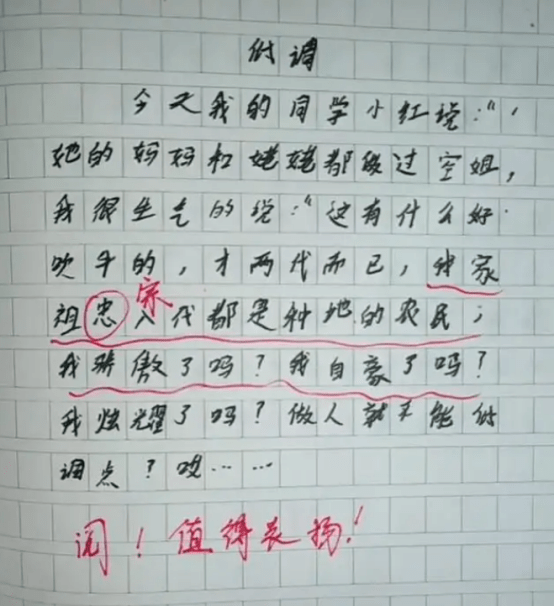 低调
今天我的同学小红说:“,
她的妈妈和姥姥都做过空姐,
我很生气的说:“这有什么好
吹牛的,才两代而已,我家
宗
祖忠八代都是种地的农民;
我骄傲了吗?我自豪了吗?
我炫耀了吗?做人就不能低
调点?哎……
阅!值得表扬!